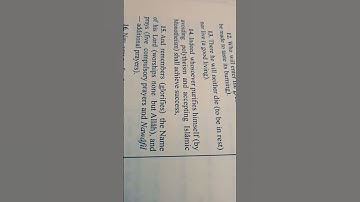 12. Who will enter the
be made to taste its burning)
13. There he will neither die (to be in rest)
nor live (a good living).
14. Indeed whosoever purifies himself (by
avoiding polytheism and accepting Islâmic
Monotheism) shall achieve success,
15. And remembers (glorifies) the Name
of his Lord (worships none but Allâh), and
prays (five compulsory prayers and Nawâfil
— additional prayers).
16.